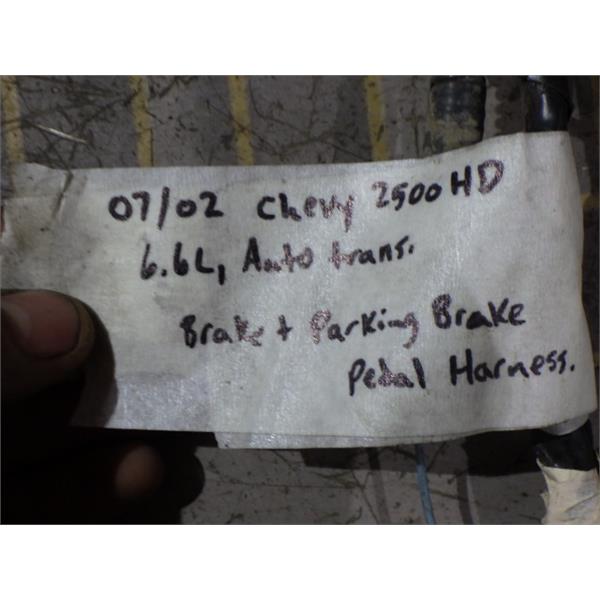 07/02 Chevy 2500HD
6.6L, Auto trans.
Brake + Parking Brake
Pedal Harness.